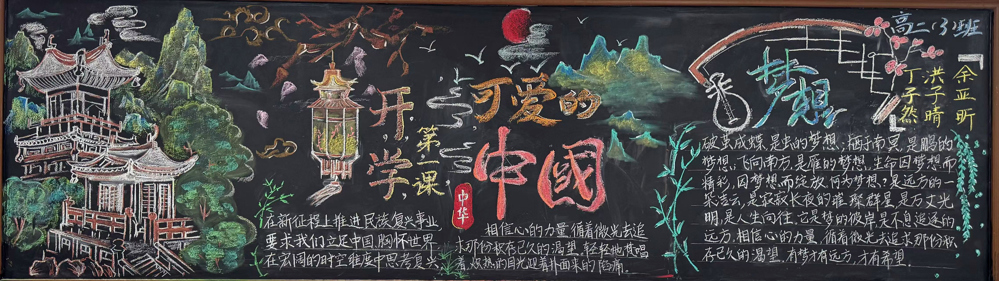 开学
第一课
可爱的
中國
中华
在新征程上推进民族复兴事业
要求我们立足中国,胸怀世界
在宏阔的时空维度中思考复兴
相信心的力量,循着微光去追
求那份叔存已久的渴望,轻轻地梵唱
着,炽热的目光迎着扑面来的陷痛。
梦想
破茧成蝶,是虫的梦想,栖于南冥,是鹏的
梦想,飞向南方,是雁的梦想,生命因梦想而
精彩,因梦想而绽放,何为梦想?是远方的一
朵青云,是寂寂长夜的璀璨群星,是万丈光
明,是人生向往,它是梦的彼岸是不息追逐的
远方,相信心的力量,循着微光去追求那份叔
存已久的渴望,有梦才有远方,才有希望。
高二(3)班
余亚昕
洪子晴
丁子然